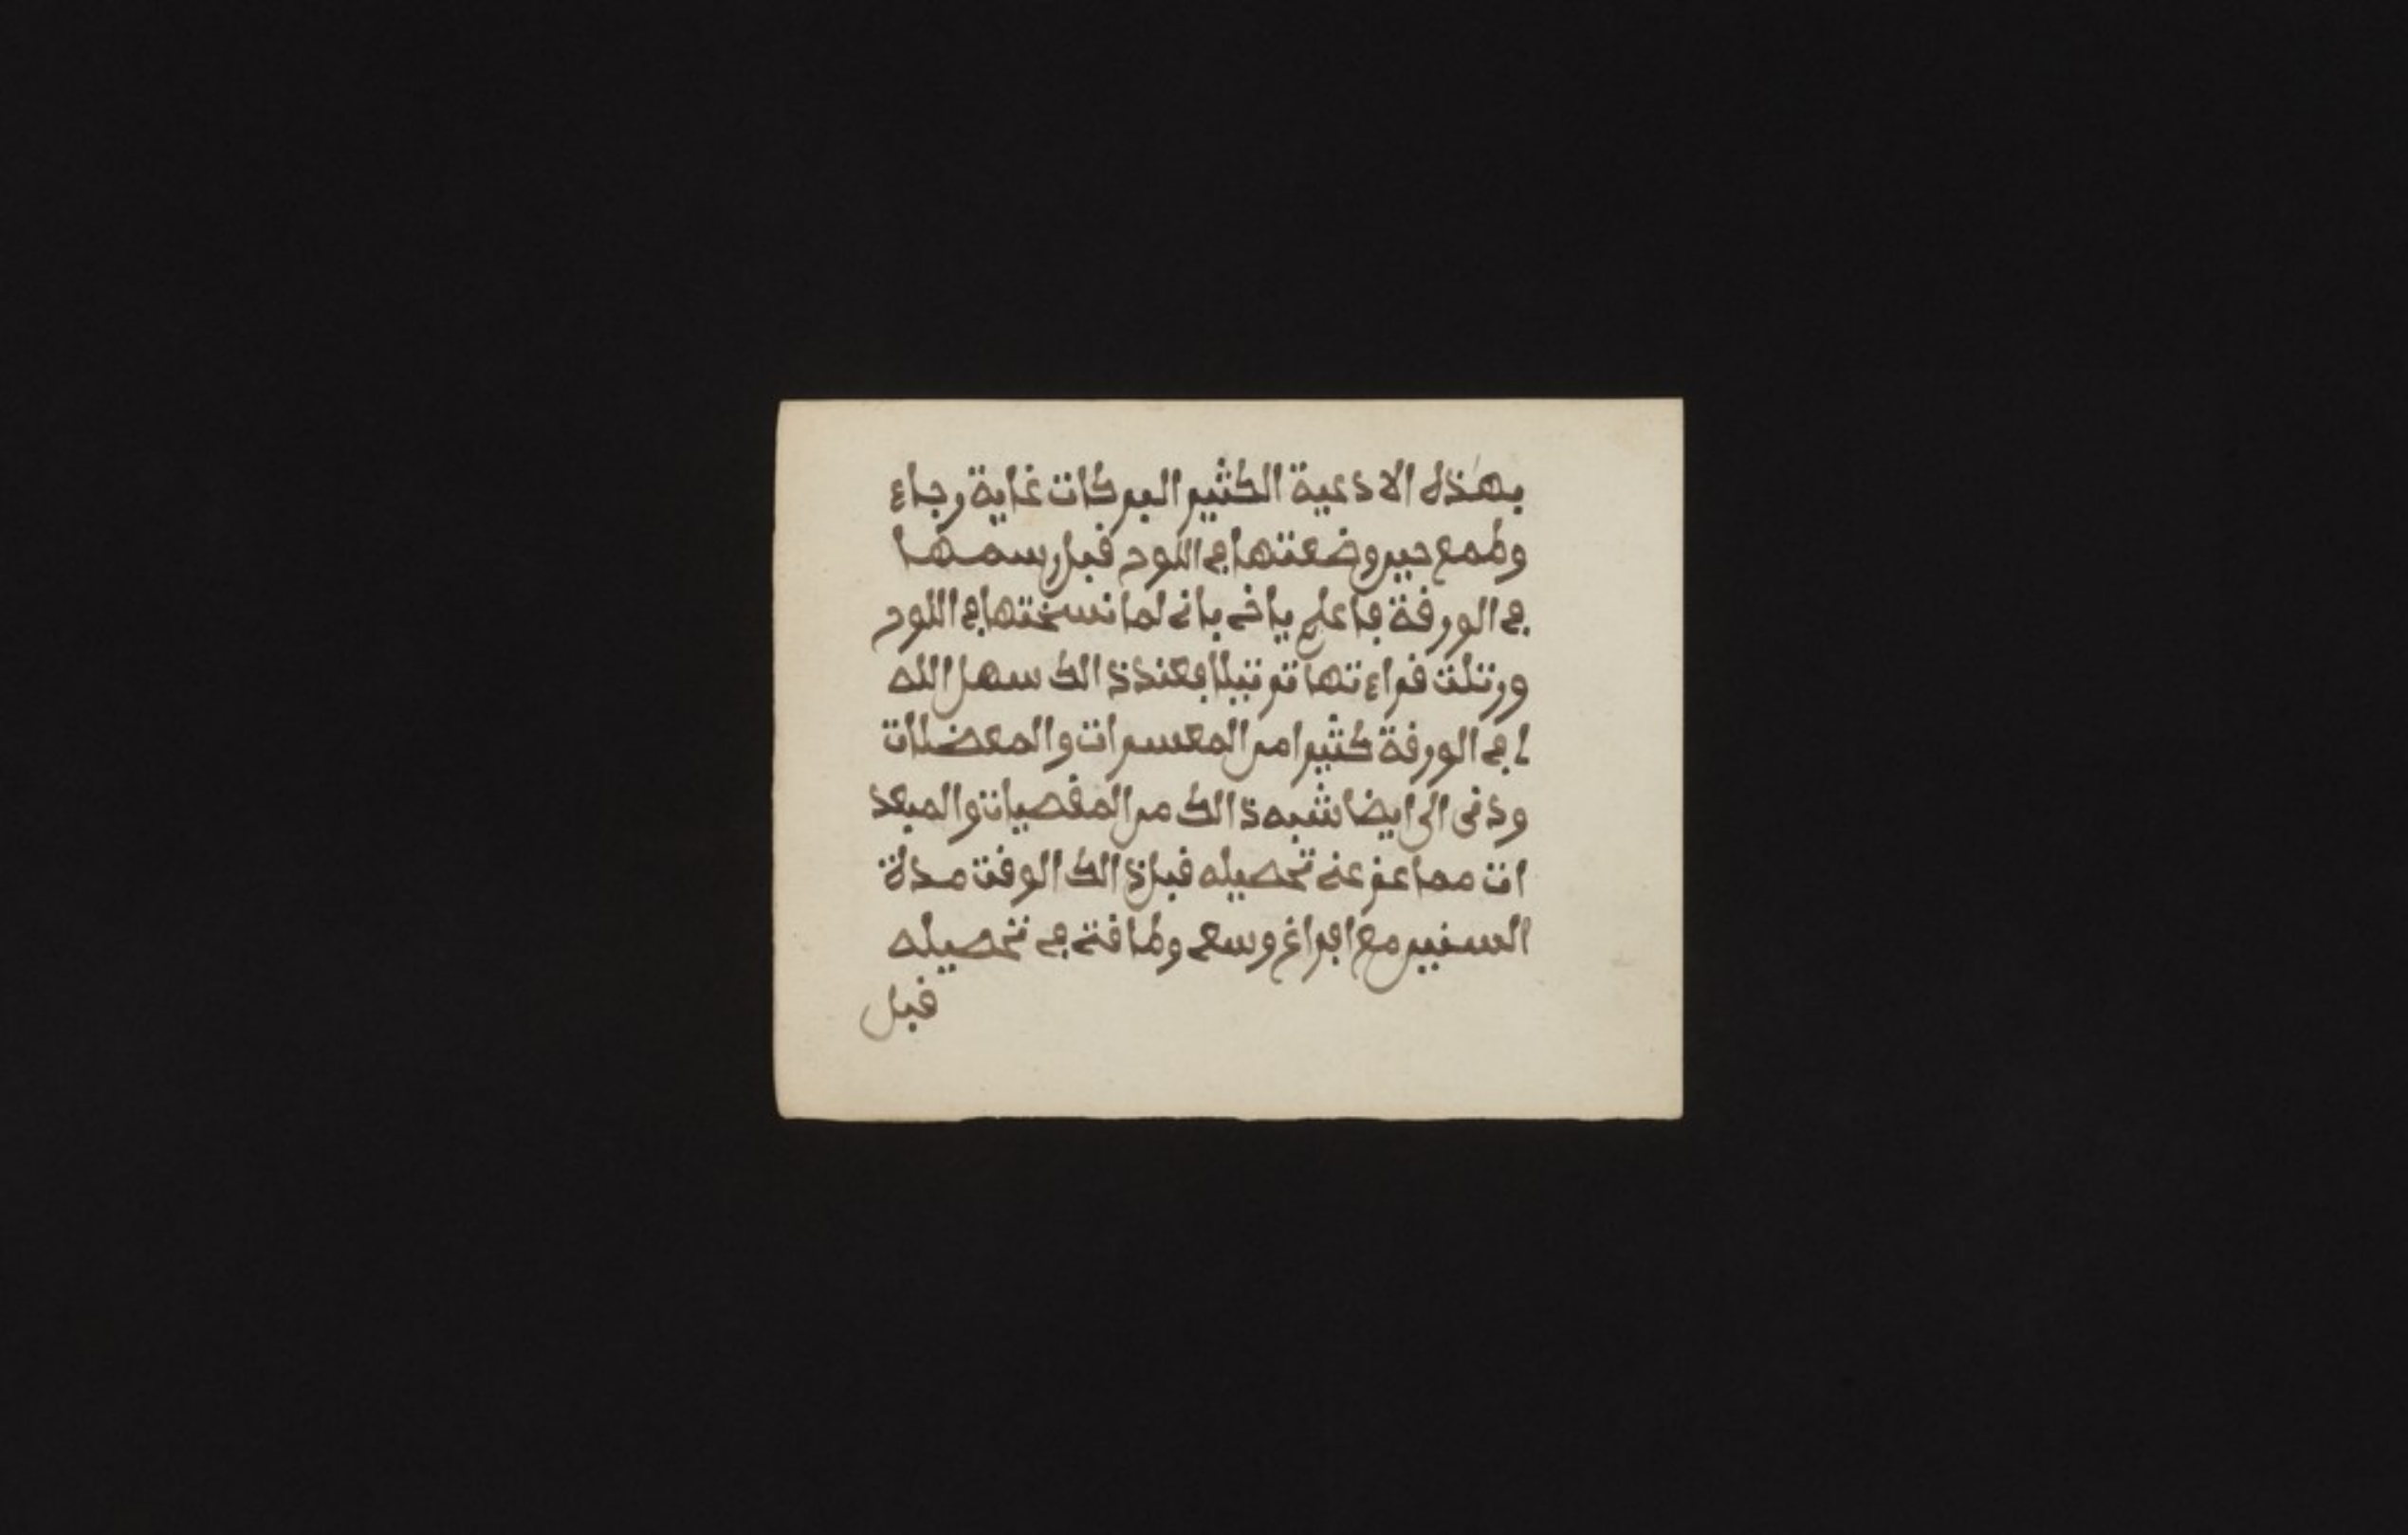 بهذه الادعية الكثير البركات غاية رجاء
وطمع حين وضعتها في اللوح قبل رسمها
في الورقة فاعلم ياخي باني لما نسختها في اللوح
ورتلت قراءتها ترتيلا فعند ذالك سهل الله
لي في الورقة كثيرا من المعسرات والمعضلات
ودنى الي ايضا شبه ذالك من المقصيات والمبعد
ات مما عز عني تحصيله قبل ذالك الوقت مدة
السنين مع افراغ وسعي وطاقتي في تحصيله
قبل